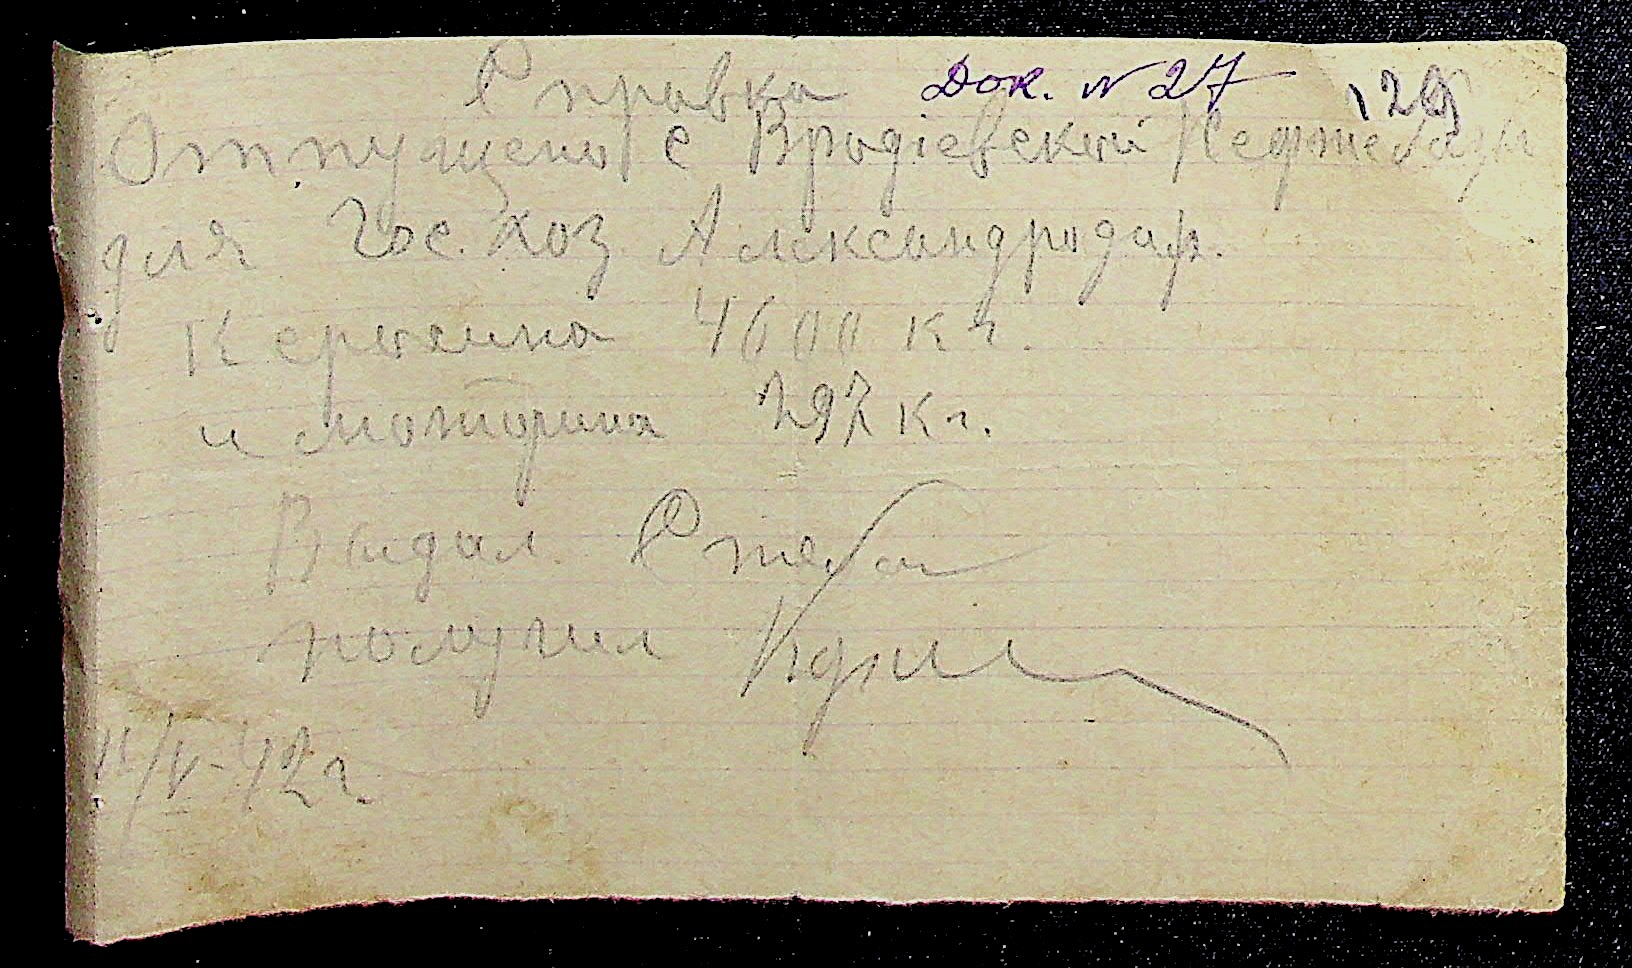 Справка Док. № 27 129
Отпущено с Вродіевской Нефтебазы
для Гос. хоз. Александродар.
Керосина 4600 кг.
и моторина 297 кг.
Выдал
получил
11/V-42 г.